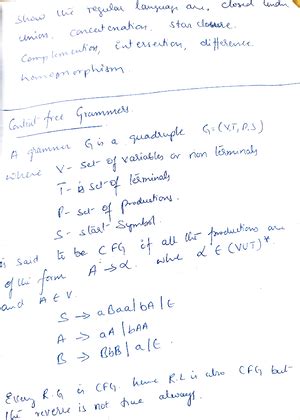 Show the regular languages are closed under
union, concatenation, star closure,
complementation, intersertion, difference
homomorphism.
Context free Grammers.
A grammer G is a quadruple G=(V,T,P,S)
where V - set of variables or non terminals
T - is set of terminals
P - set of productions.
S - start Symbol.
is said to be CFG if all the productions are
of the form A → α. where α ∈ (VUT)*.
and A ∈ V.
S → aBaa|bA|ε
A → aA|bAA
B → BbB|a|ε.
Every R.G is CFG. hence R.L is also CFG but
the reverse is not true always.